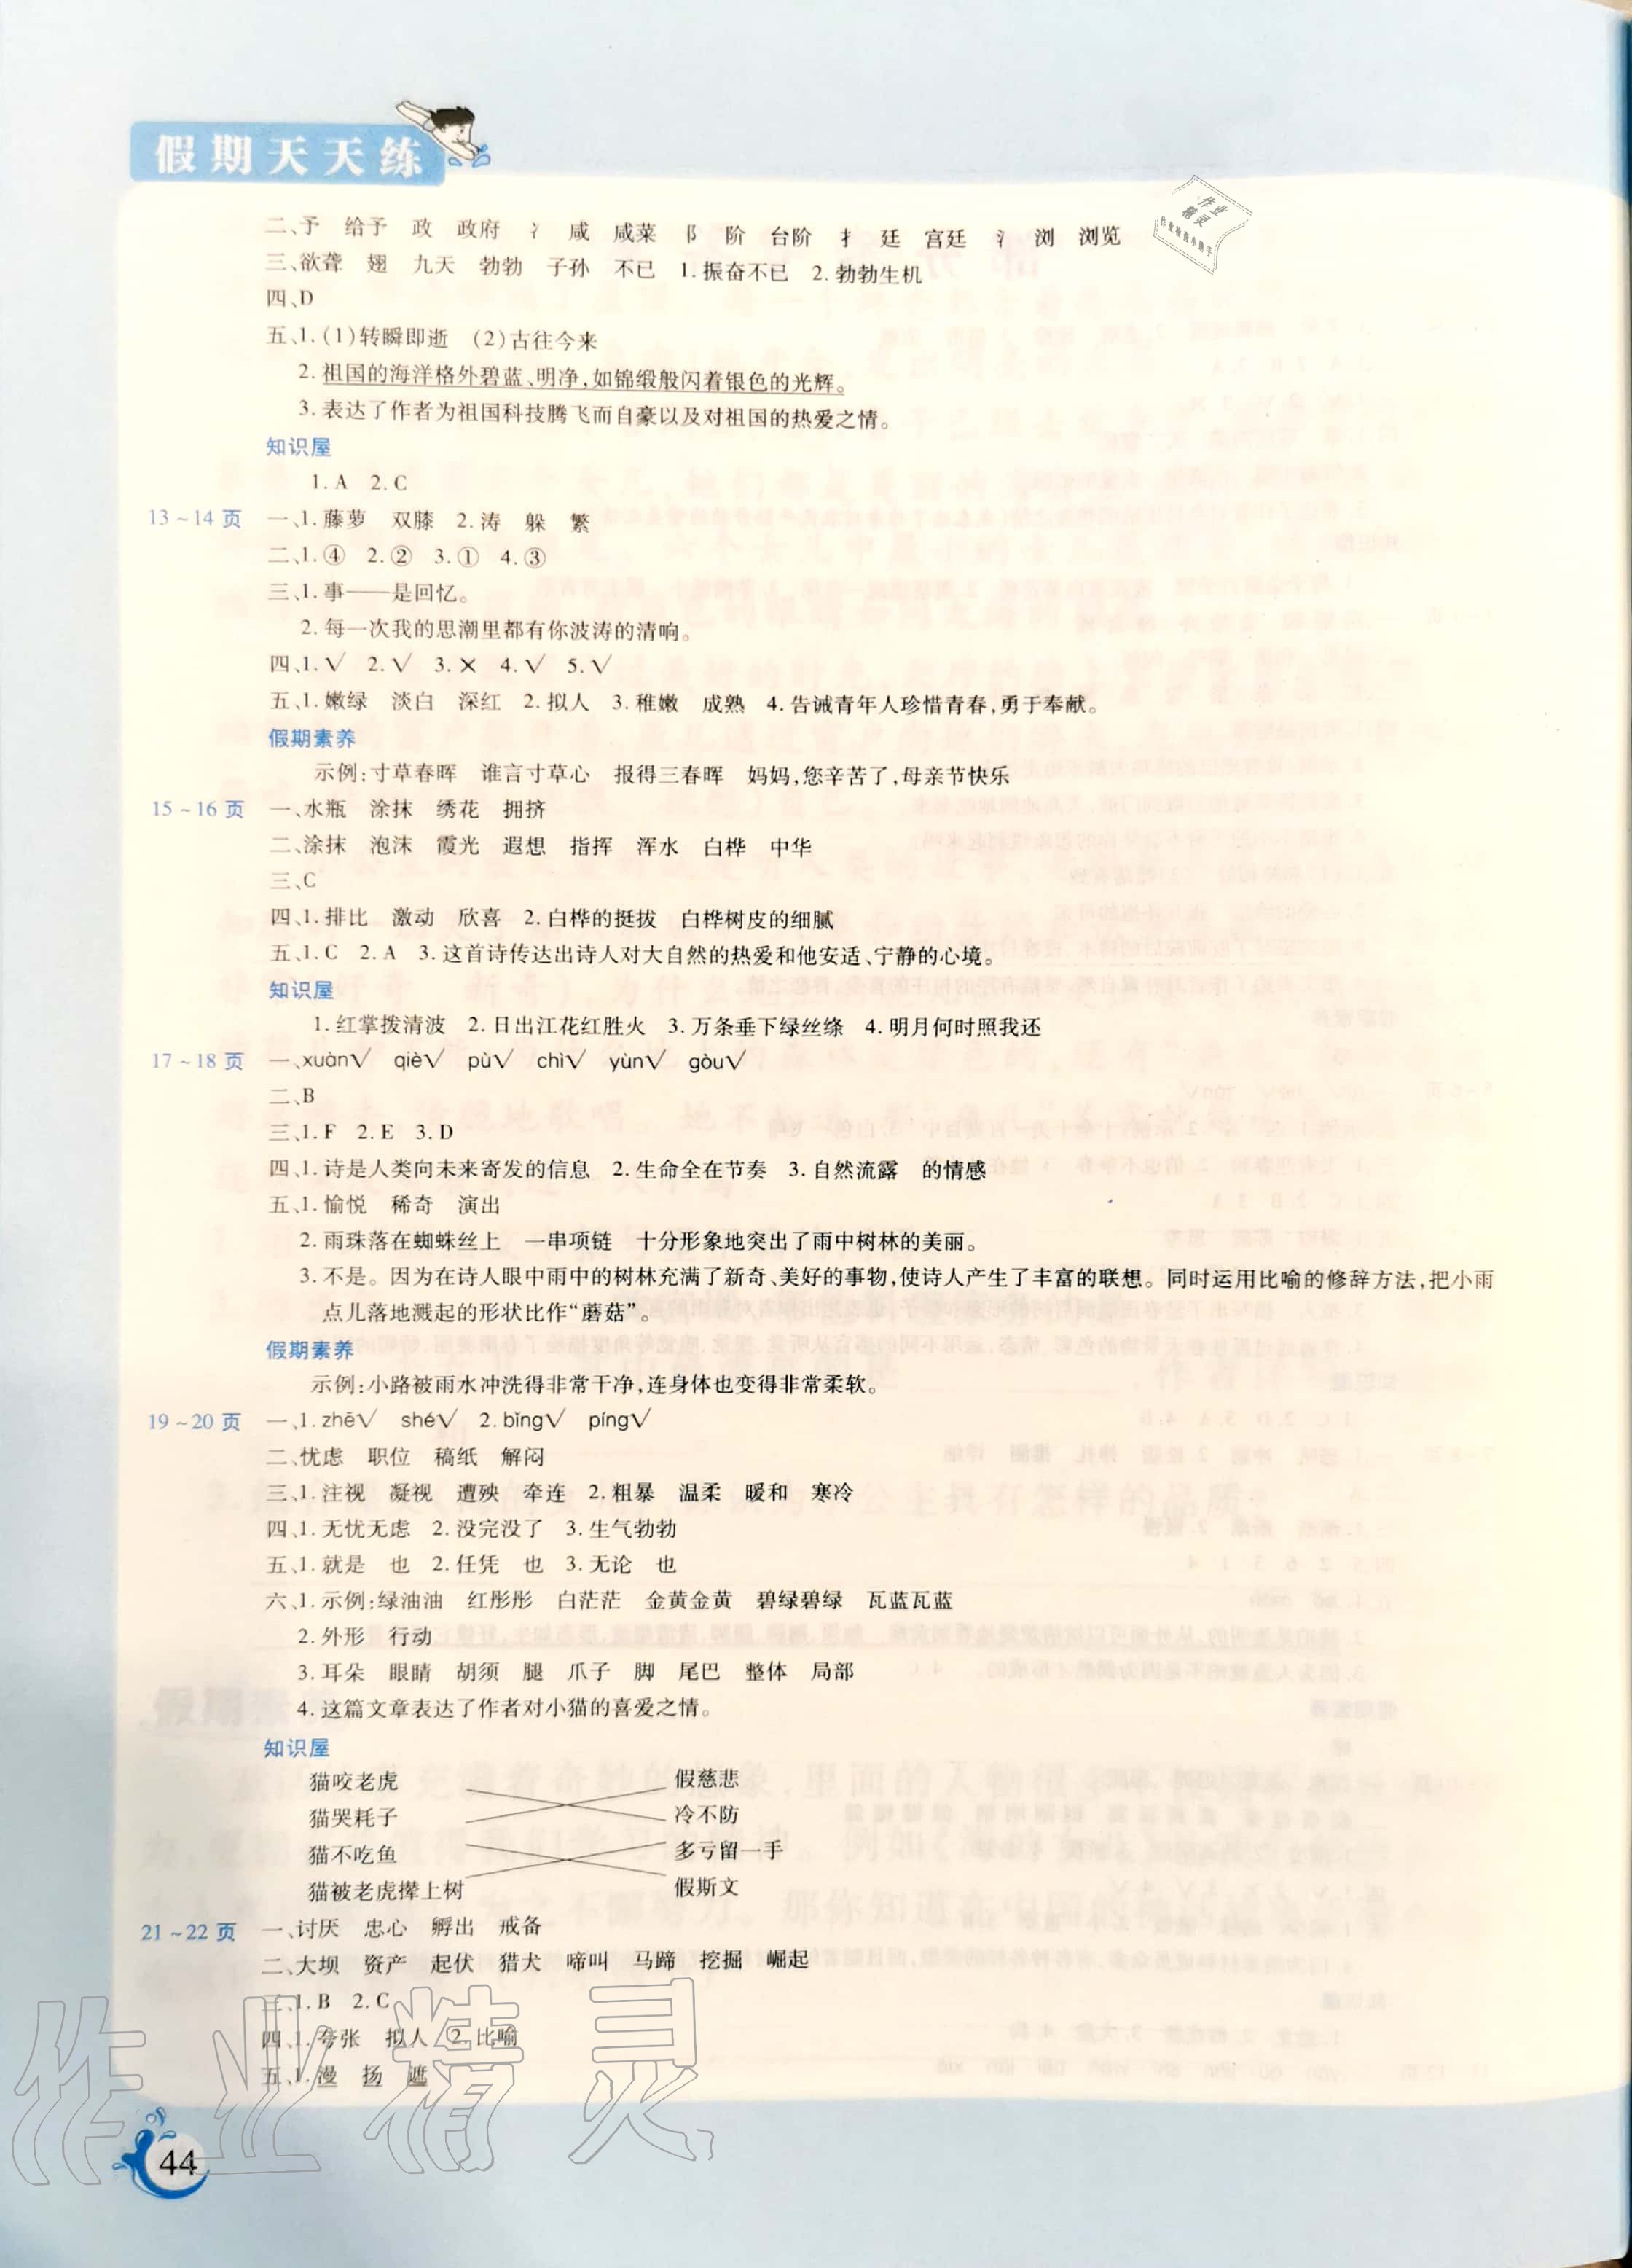 假期天天练
作业
精灵
作业检查小助手
二、予 给予 政 政府 冫 咸 咸菜 阝 阶 台阶 扌 廷 宫廷 氵 浏 浏览
三、欲聋 翅 九天 勃勃 子孙 不已 1.振奋不已 2.勃勃生机
四、D
五、1.(1)转瞬即逝 (2)古往今来
2.祖国的海洋格外碧蓝、明净,如锦缎般闪着银色的光辉。
3.表达了作者为祖国科技腾飞而自豪以及对祖国的热爱之情。
知识屋
1.A 2.C
13~14页 一、1.藤萝 双膝 2.涛 躲 繁
二、1.④ 2.② 3.① 4.③
三、1.事——是回忆。
2.每一次我的思潮里都有你波涛的清响。
四、1.√ 2.√ 3.× 4.√ 5.√
五、1.嫩绿 淡白 深红 2.拟人 3.稚嫩 成熟 4.告诫青年人珍惜青春,勇于奉献。
假期素养
示例:寸草春晖 谁言寸草心 报得三春晖 妈妈,您辛苦了,母亲节快乐
15~16页 一、水瓶 涂抹 绣花 拥挤
二、涂抹 泡沫 霞光 遐想 指挥 浑水 白桦 中华
三、C
四、1.排比 激动 欣喜 2.白桦的挺拔 白桦树皮的细腻
五、1.C 2.A 3.这首诗传达出诗人对大自然的热爱和他安适、宁静的心境。
知识屋
1.红掌拨清波 2.日出江花红胜火 3.万条垂下绿丝绦 4.明月何时照我还
17~18页 一、xuàn√ qiè√ pù√ chì√ yùn√ gòu√
二、B
三、1.F 2.E 3.D
四、1.诗是人类向未来寄发的信息 2.生命全在节奏 3.自然流露 的情感
五、1.愉悦 稀奇 演出
2.雨珠落在蜘蛛丝上 一串项链 十分形象地突出了雨中树林的美丽。
3.不是。因为在诗人眼中雨中的树林充满了新奇、美好的事物,使诗人产生了丰富的联想。同时运用比喻的修辞方法,把小雨
点儿落地溅起的形状比作“蘑菇”。
假期素养
示例:小路被雨水冲洗得非常干净,连身体也变得非常柔软。
19~20页 一、1.zhē√ shé√ 2.bǐng√ píng√
二、忧虑 职位 稿纸 解闷
三、1.注视 凝视 遭殃 牵连 2.粗暴 温柔 暖和 寒冷
四、1.无忧无虑 2.没完没了 3.生气勃勃
五、1.就是 也 2.任凭 也 3.无论 也
六、1.示例:绿油油 红彤彤 白茫茫 金黄金黄 碧绿碧绿 瓦蓝瓦蓝
2.外形 行动
3.耳朵 眼睛 胡须 腿 爪子 脚 尾巴 整体 局部
4.这篇文章表达了作者对小猫的喜爱之情。
知识屋
猫咬老虎 假慈悲
猫哭耗子 冷不防
猫不吃鱼 多亏留一手
猫被老虎撵上树 假斯文
21~22页 一、讨厌 忠心 孵出 戒备
二、大坝 资产 起伏 猎犬 啼叫 马蹄 挖掘 崛起
三、1.B 2.C
四、1.夸张 拟人 2.比喻
五、1.漫 扬 遮
作业精灵
44